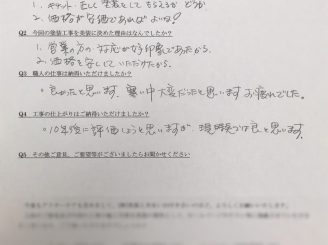 1. キチット、正しく塗装をしてもらえるか どうか
2. 価格が安価であればよい!
Q2 今回の塗装工事を美装に決めた理由はなんでしたか?
1. 営業の方の対応が好印象であったから。
2. 価格を安くしていただけたから。
Q3 職人の仕事は納得いただけましたか?
○良かったと思います。寒い中大変だったと思います お疲れでした。
Q4 工事の仕上がりはご納得いただけましたか?
○10年後に評価しようと思いますが、現時点では良と思います。
Q5 その他ご意見、ご要望等がございましたらお聞かせください